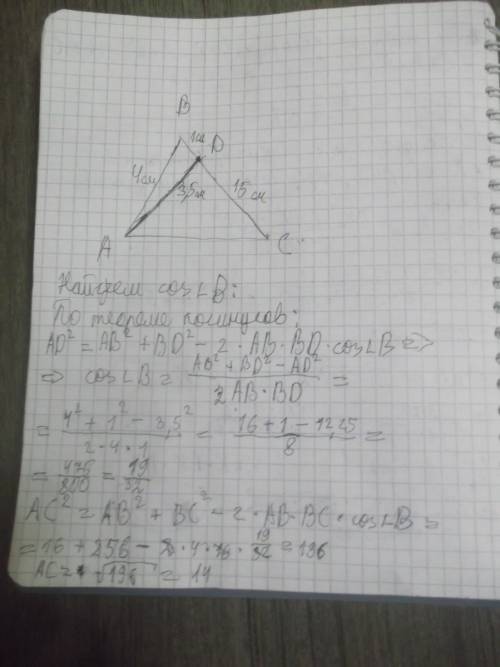 B
1см
D
4см
3,5см
15см
A
C
Найдем cos∠B:
По теореме косинусов:
AD² = AB² + BD² - 2 · AB · BD · cos∠B ⇒
⇒ cos∠B = (AB² + BD² - AD²) / (2AB · BD) =
= (4² + 1² - 3,5²) / (2 · 4 · 1) = (16 + 1 - 12,25) / 8 =
= 475/800 = 19/32
AC² = AB² + BC² - 2 · AB · BC · cos∠B =
= 16 + 256 - 2 · 4 · 16 · 19/32 = 196
AC = √196 = 14